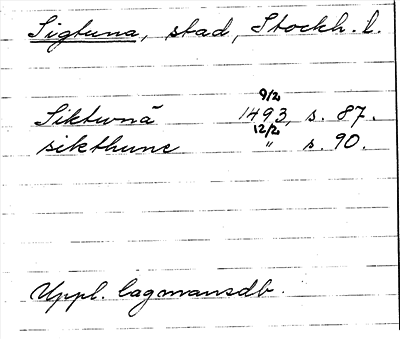 Sigtuna, stad, Stockh. l.
9/2
Siktunā 1493, s. 87.
12/2
sikthune " s. 90.
Uppl. lagmansdb.